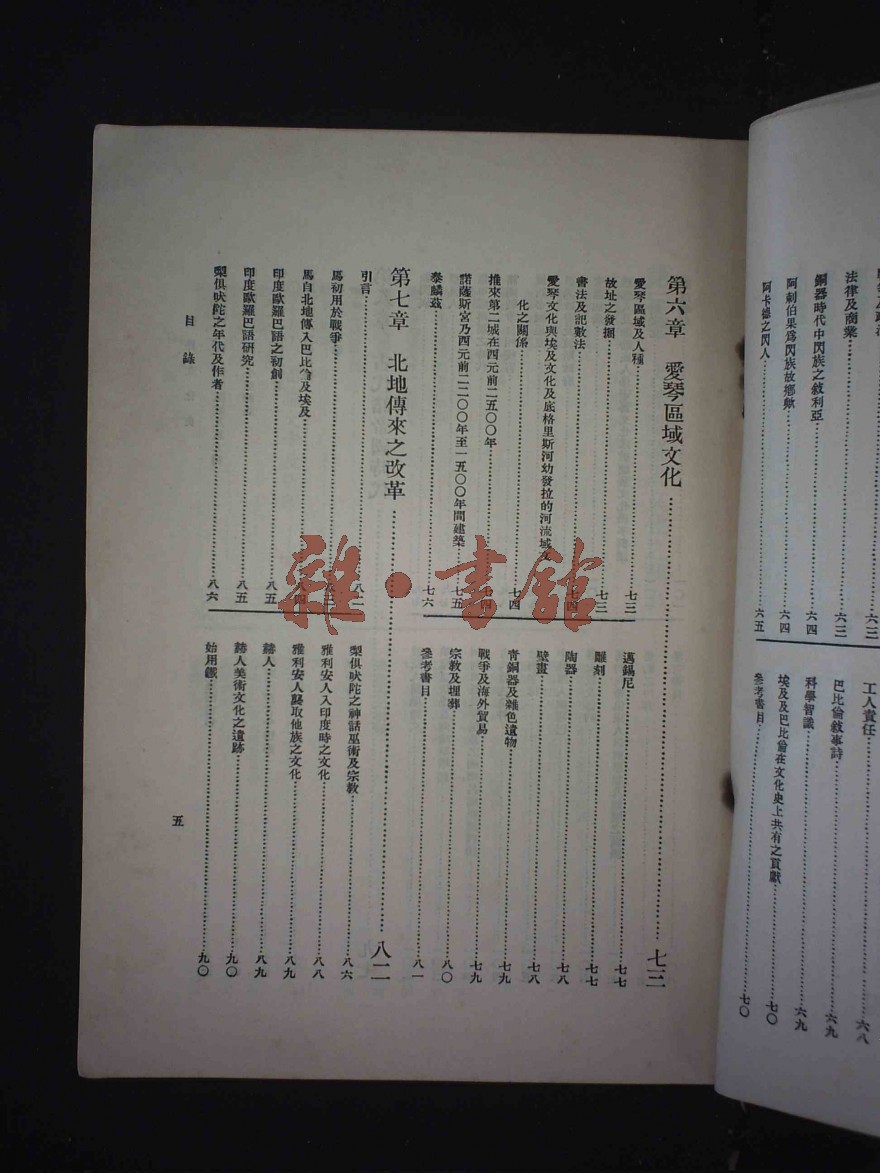 法律及商業……六三
銅器時代中閃族之敘利亞……六四
阿剌伯果爲閃族故鄉歟……六四
阿卡德之閃人……六五
工人責任……六八
巴比倫敘事詩……六九
科學智識……六九
埃及及巴比倫在文化史上共有之貢獻……七〇
參考書目……七〇
第六章 愛琴區域文化……七三
愛琴區域及人種……七三
故址之發掘……七三
書法及記數法……七四
愛琴文化與埃及文化及底格里斯河幼發拉的河流域文
化之關係……七四
推來第二城在西元前二五〇〇年……七四
諾薩斯宮乃西元前二二〇〇年至一五〇〇年間建築……七五
泰麟茲……七六
邁錫尼……七七
雕刻……七七
陶器……七八
壁畫……七八
青銅器及雜色遺物……七九
戰爭及海外貿易……七九
宗教及埋葬……八〇
參考書目……八一
第七章 北地傳來之改革……八二
引言……八二
馬初用於戰爭……八三
馬自北地傳入巴比倫及埃及……八四
印度歐羅巴語之初創……八五
印度歐羅巴語研究……八五
梨俱吠陀之年代及作者……八六
梨俱吠陀之神話巫術及宗教……八六
雅利安人入印度時之文化……八八
雅利安人襲取他族之文化……八九
赫人……八九
赫人美術文化之遺跡……九〇
始用鐵……九〇
目錄
五
雜·書館